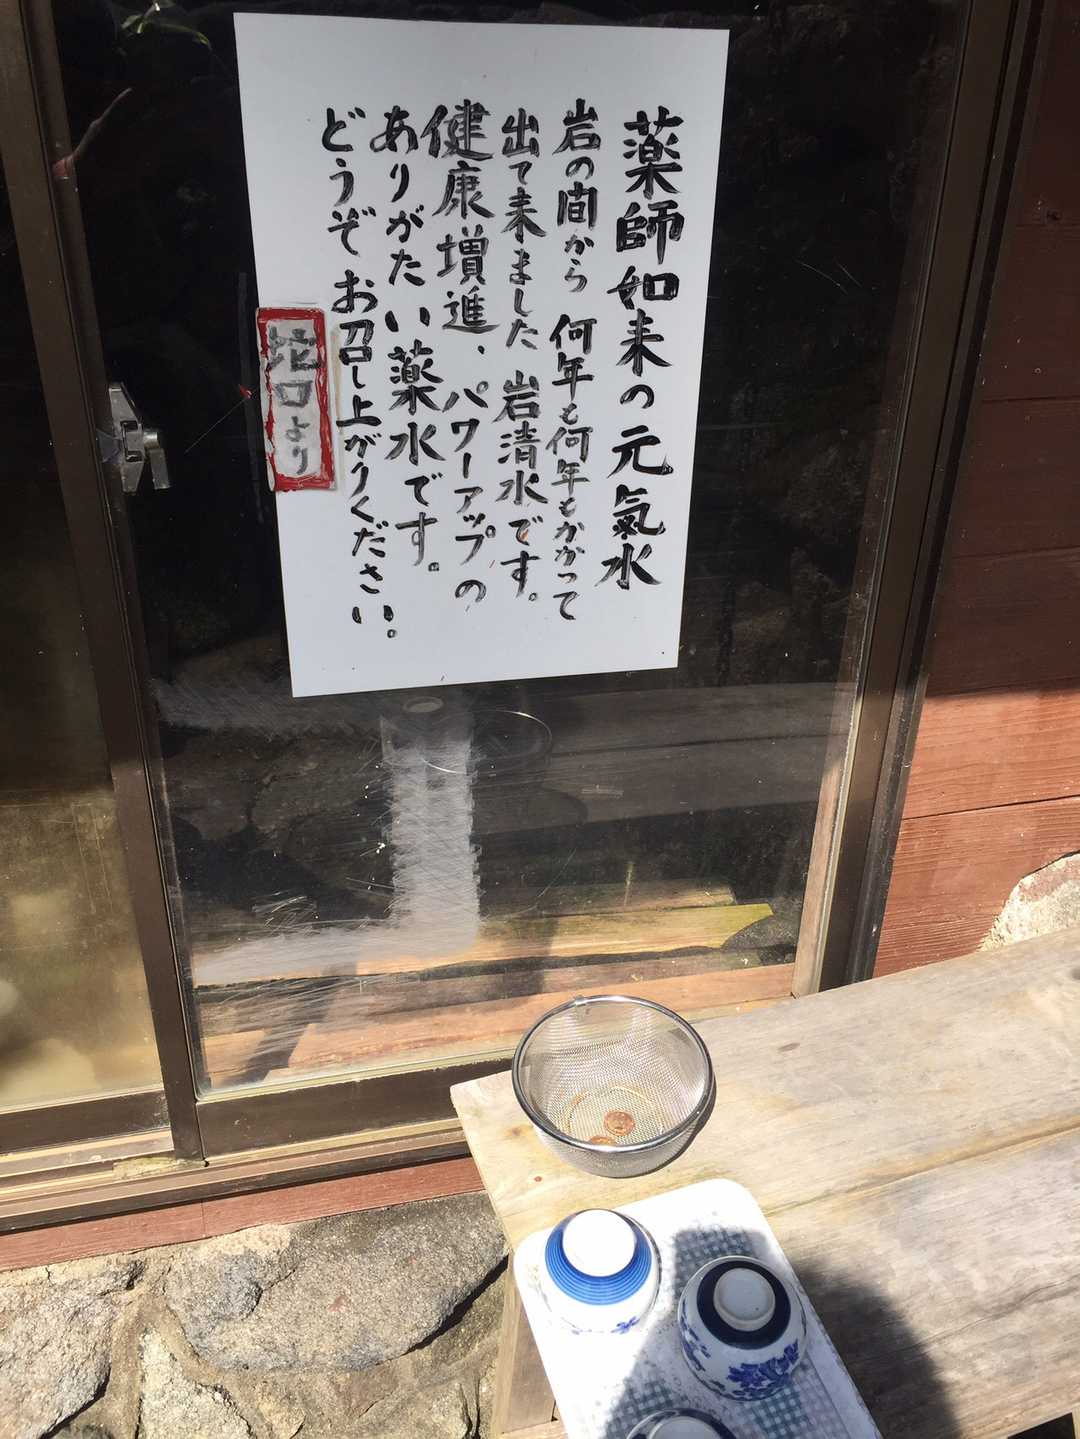 薬師如来の元氣水
岩の間から何年も何年もかかって
出て来ました岩清水です。
健康増進、パワーアップの
ありがたい薬水です。
どうぞお召し上がりください。
蛇口より